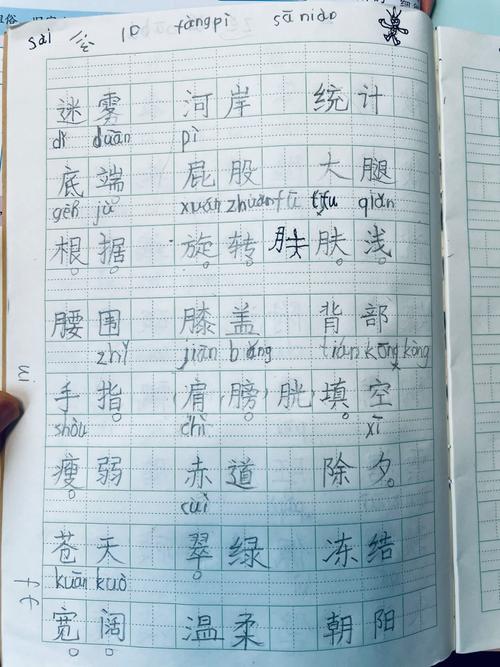 sai 10 fàngpì sā niào
迷雾 河岸 统计
dǐ duān pì
底端 屁股 大腿
gēn jù xuán zhuǎn fū qiǎn
根据 旋转 肤 肤浅
腰围 膝盖 背部
zhǐ jiān bǎng tián kōng kòng
手指 (肩膀) 胱 填空
shòu chì xī
瘦弱 赤道 除夕
cuì
苍天 翠绿 冻结
kuān kuò
宽阔 温柔 朝阳